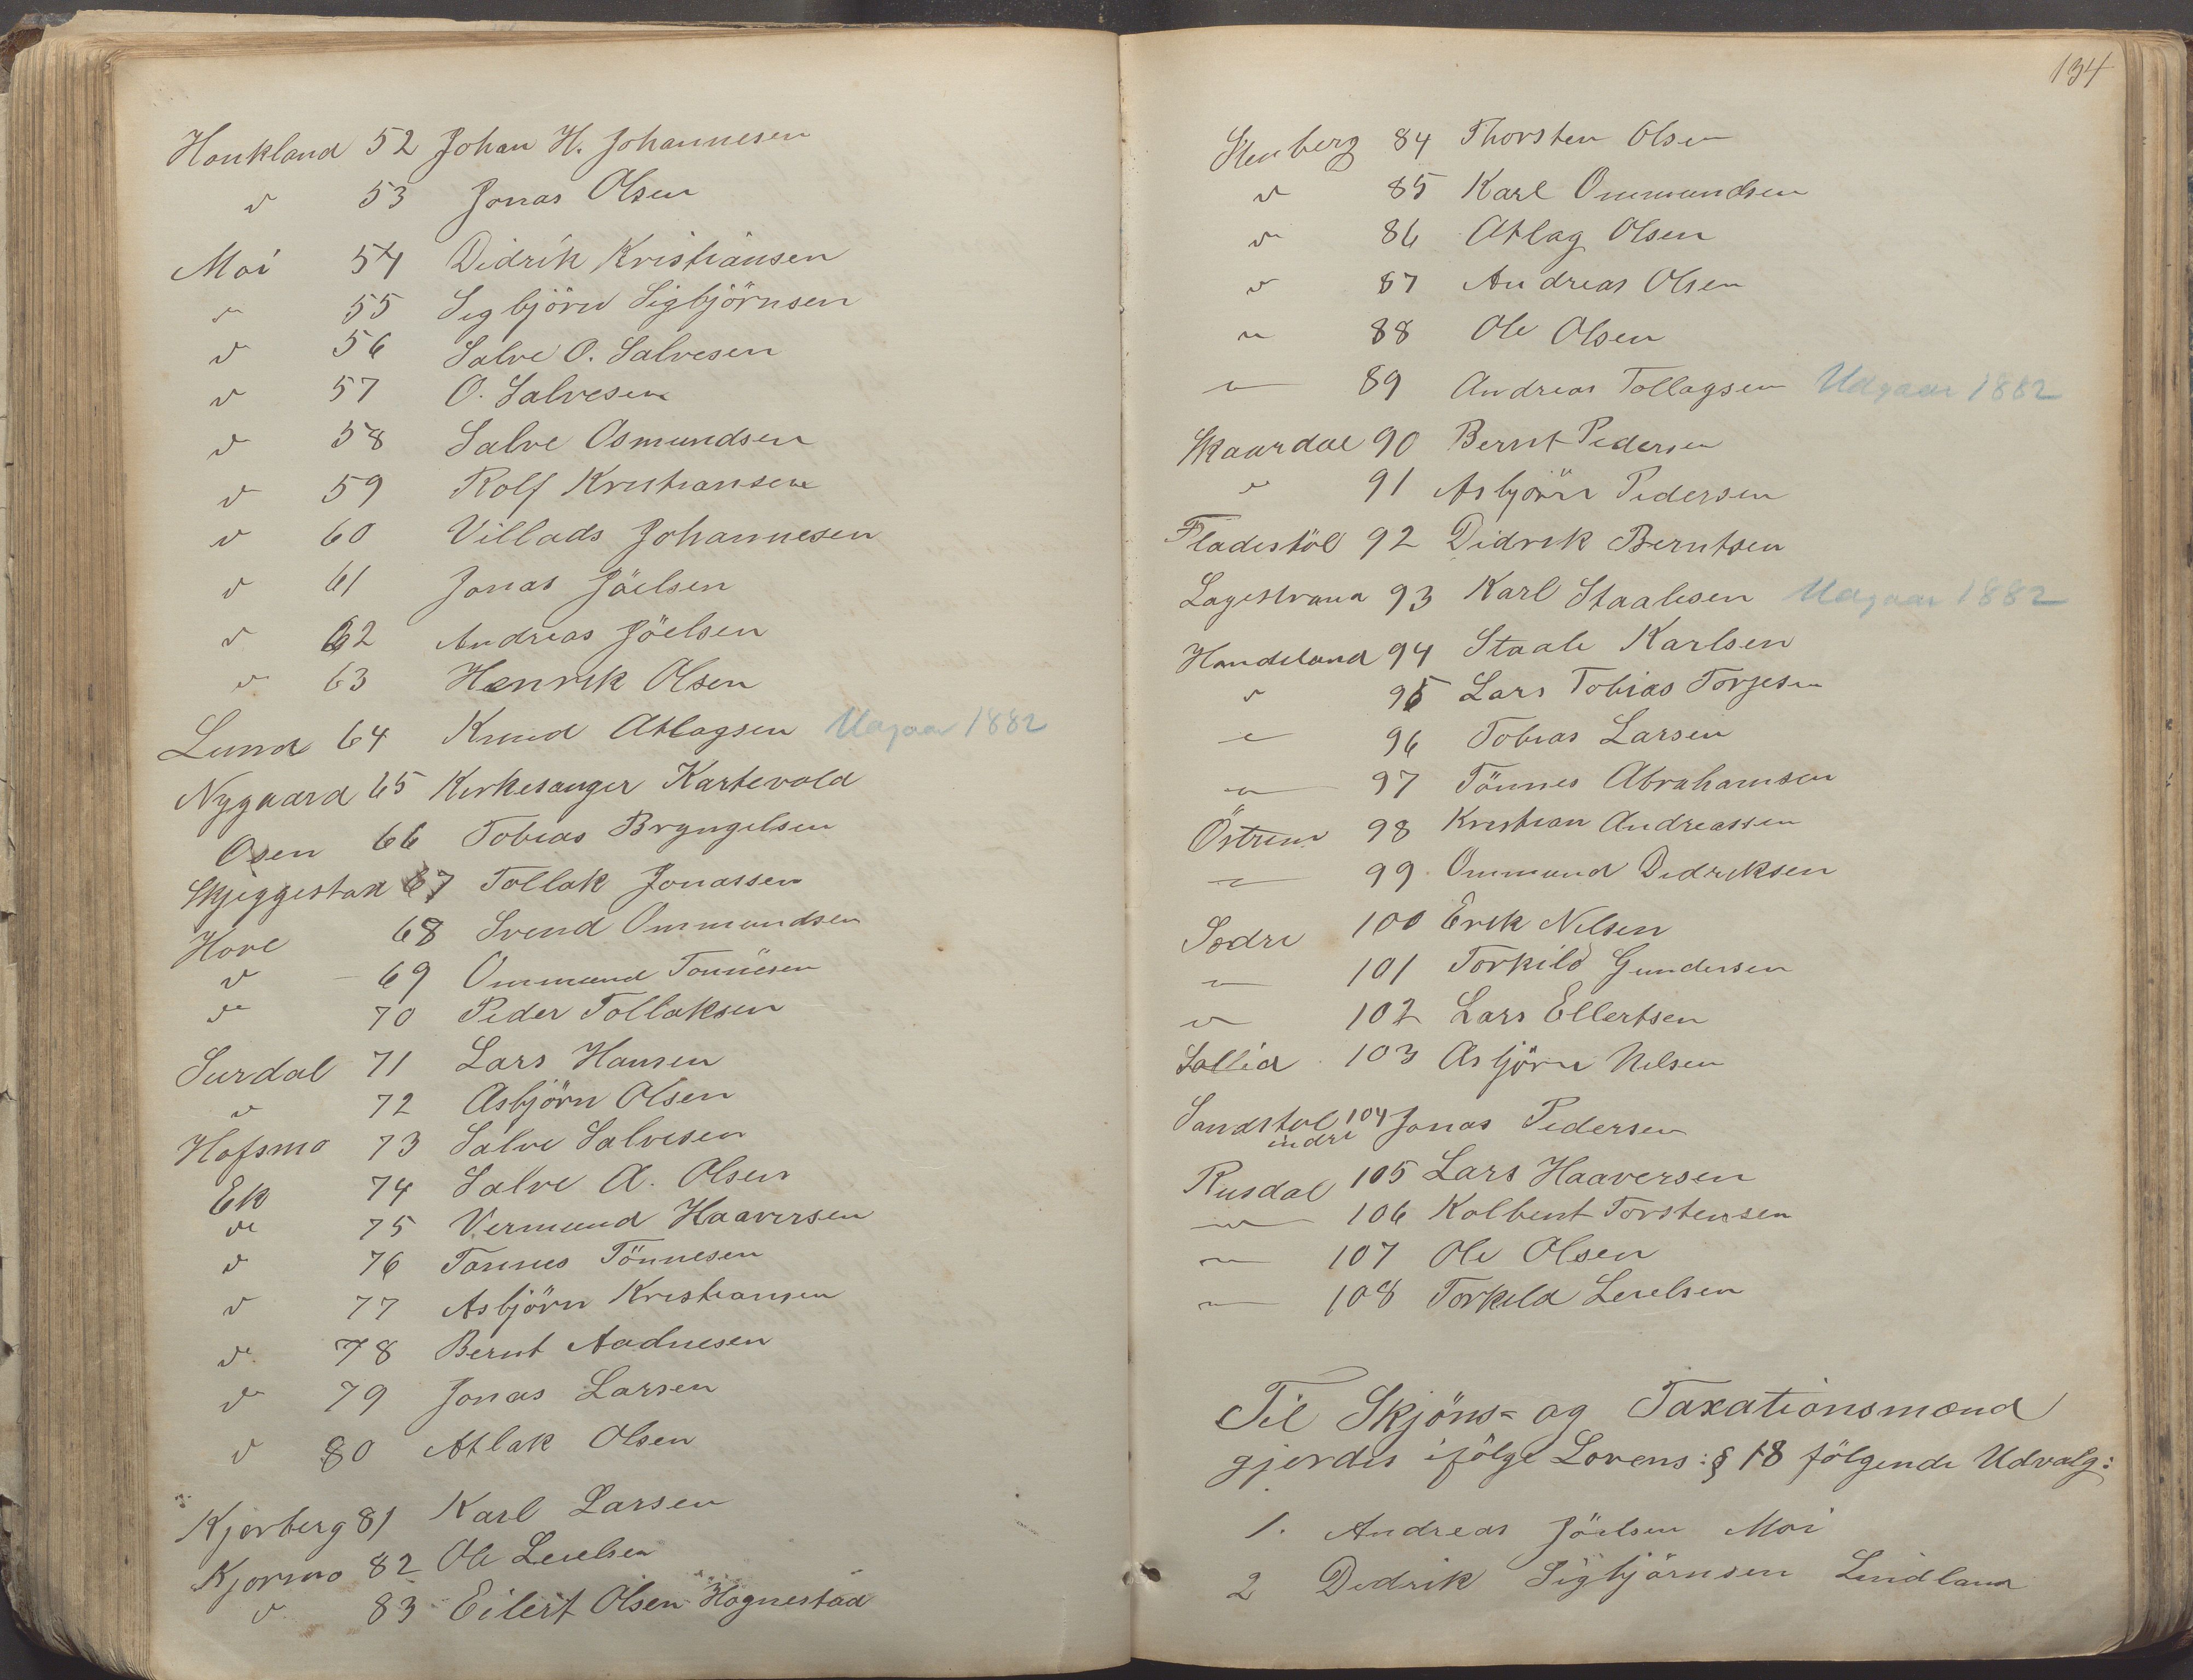 Haukland 52 Johan H. Johannesen
" 53 Jonas Olsen
Moi 54 Didrik Kristiansen
" 55 Sigbjörn Sigbjörnsen
" 56 Salve O. Salvesen
" 57 O. Salvesen
" 58 Salve Osmundsen
" 59 Rolf Kristiansen
" 60 Villads Johannesen
" 61 Jonas Jöelsen
" 62 Andreas Jöelsen
" 63 Henrik Olsen
Lund 64 Knud Atlagsen Udgaar 1882
Nygaard 65 Kirkesanger Kartevold
Osen 66 Tobias Bryngelsen
Skjeggestad 67 Tollak Jonassen
Hove 68 Svend Ommundsen
" 69 Ommund Tönnesen
" 70 Peder Tollaksen
Surdal 71 Lars Hansen
" 72 Asbjörn Olsen
Hofsmo 73 Salve Salvesen
Ek 74 Salve A. Olsen
" 75 Vermund Haaversen
" 76 Tönnes Tönnesen
" 77 Asbjörn Kristiansen
" 78 Bernt Aadnesen
" 79 Jonas Larsen
" 80 Atlak Olsen
Kjerberg 81 Karl Larsen
Kjormo 82 Ole Leielsen
" 83 Eilert Olsen Hognestad
134
Stenberg 84 Thorsten Olsen
" 85 Karl Ommundsen
" 86 Atlag Olsen
" 87 Andreas Olsen
" 88 Ole Olsen
" 89 Andreas Tollagsen Udgaar 1882
Skaardal 90 Bernt Pedersen
" 91 Asbjörn Pedersen
Fladestöl 92 Didrik Berntsen
Lagestrand 93 Karl Staalesen Udgaar 1882
Handeland 94 Staale Karlsen
" 95 Lars Tobias Torjesen
" 96 Tobias Larsen
" 97 Tönnes Abrahamsen
Östrem 98 Kristian Andreassen
" 99 Ommund Didriksen
Sædre 100 Erik Nilsen
" 101 Torkild Gundersen
" 102 Lars Ellertsen
Sollid 103 Asbjörn Nilsen
Sandstøl indre 104 Jonas Pedersen
Rusdal 105 Lars Haaversen
" 106 Kolbent Torstensen
" 107 Ole Olsen
" 108 Torkild Leielsen
Til Skjöns- og Taxationsmænd
gjordes ifölge Lovens: § 18 fölgende Udvalg:
1. Andreas Jöelsen Moi
2 Didrik Sigbjörnsen Lindland